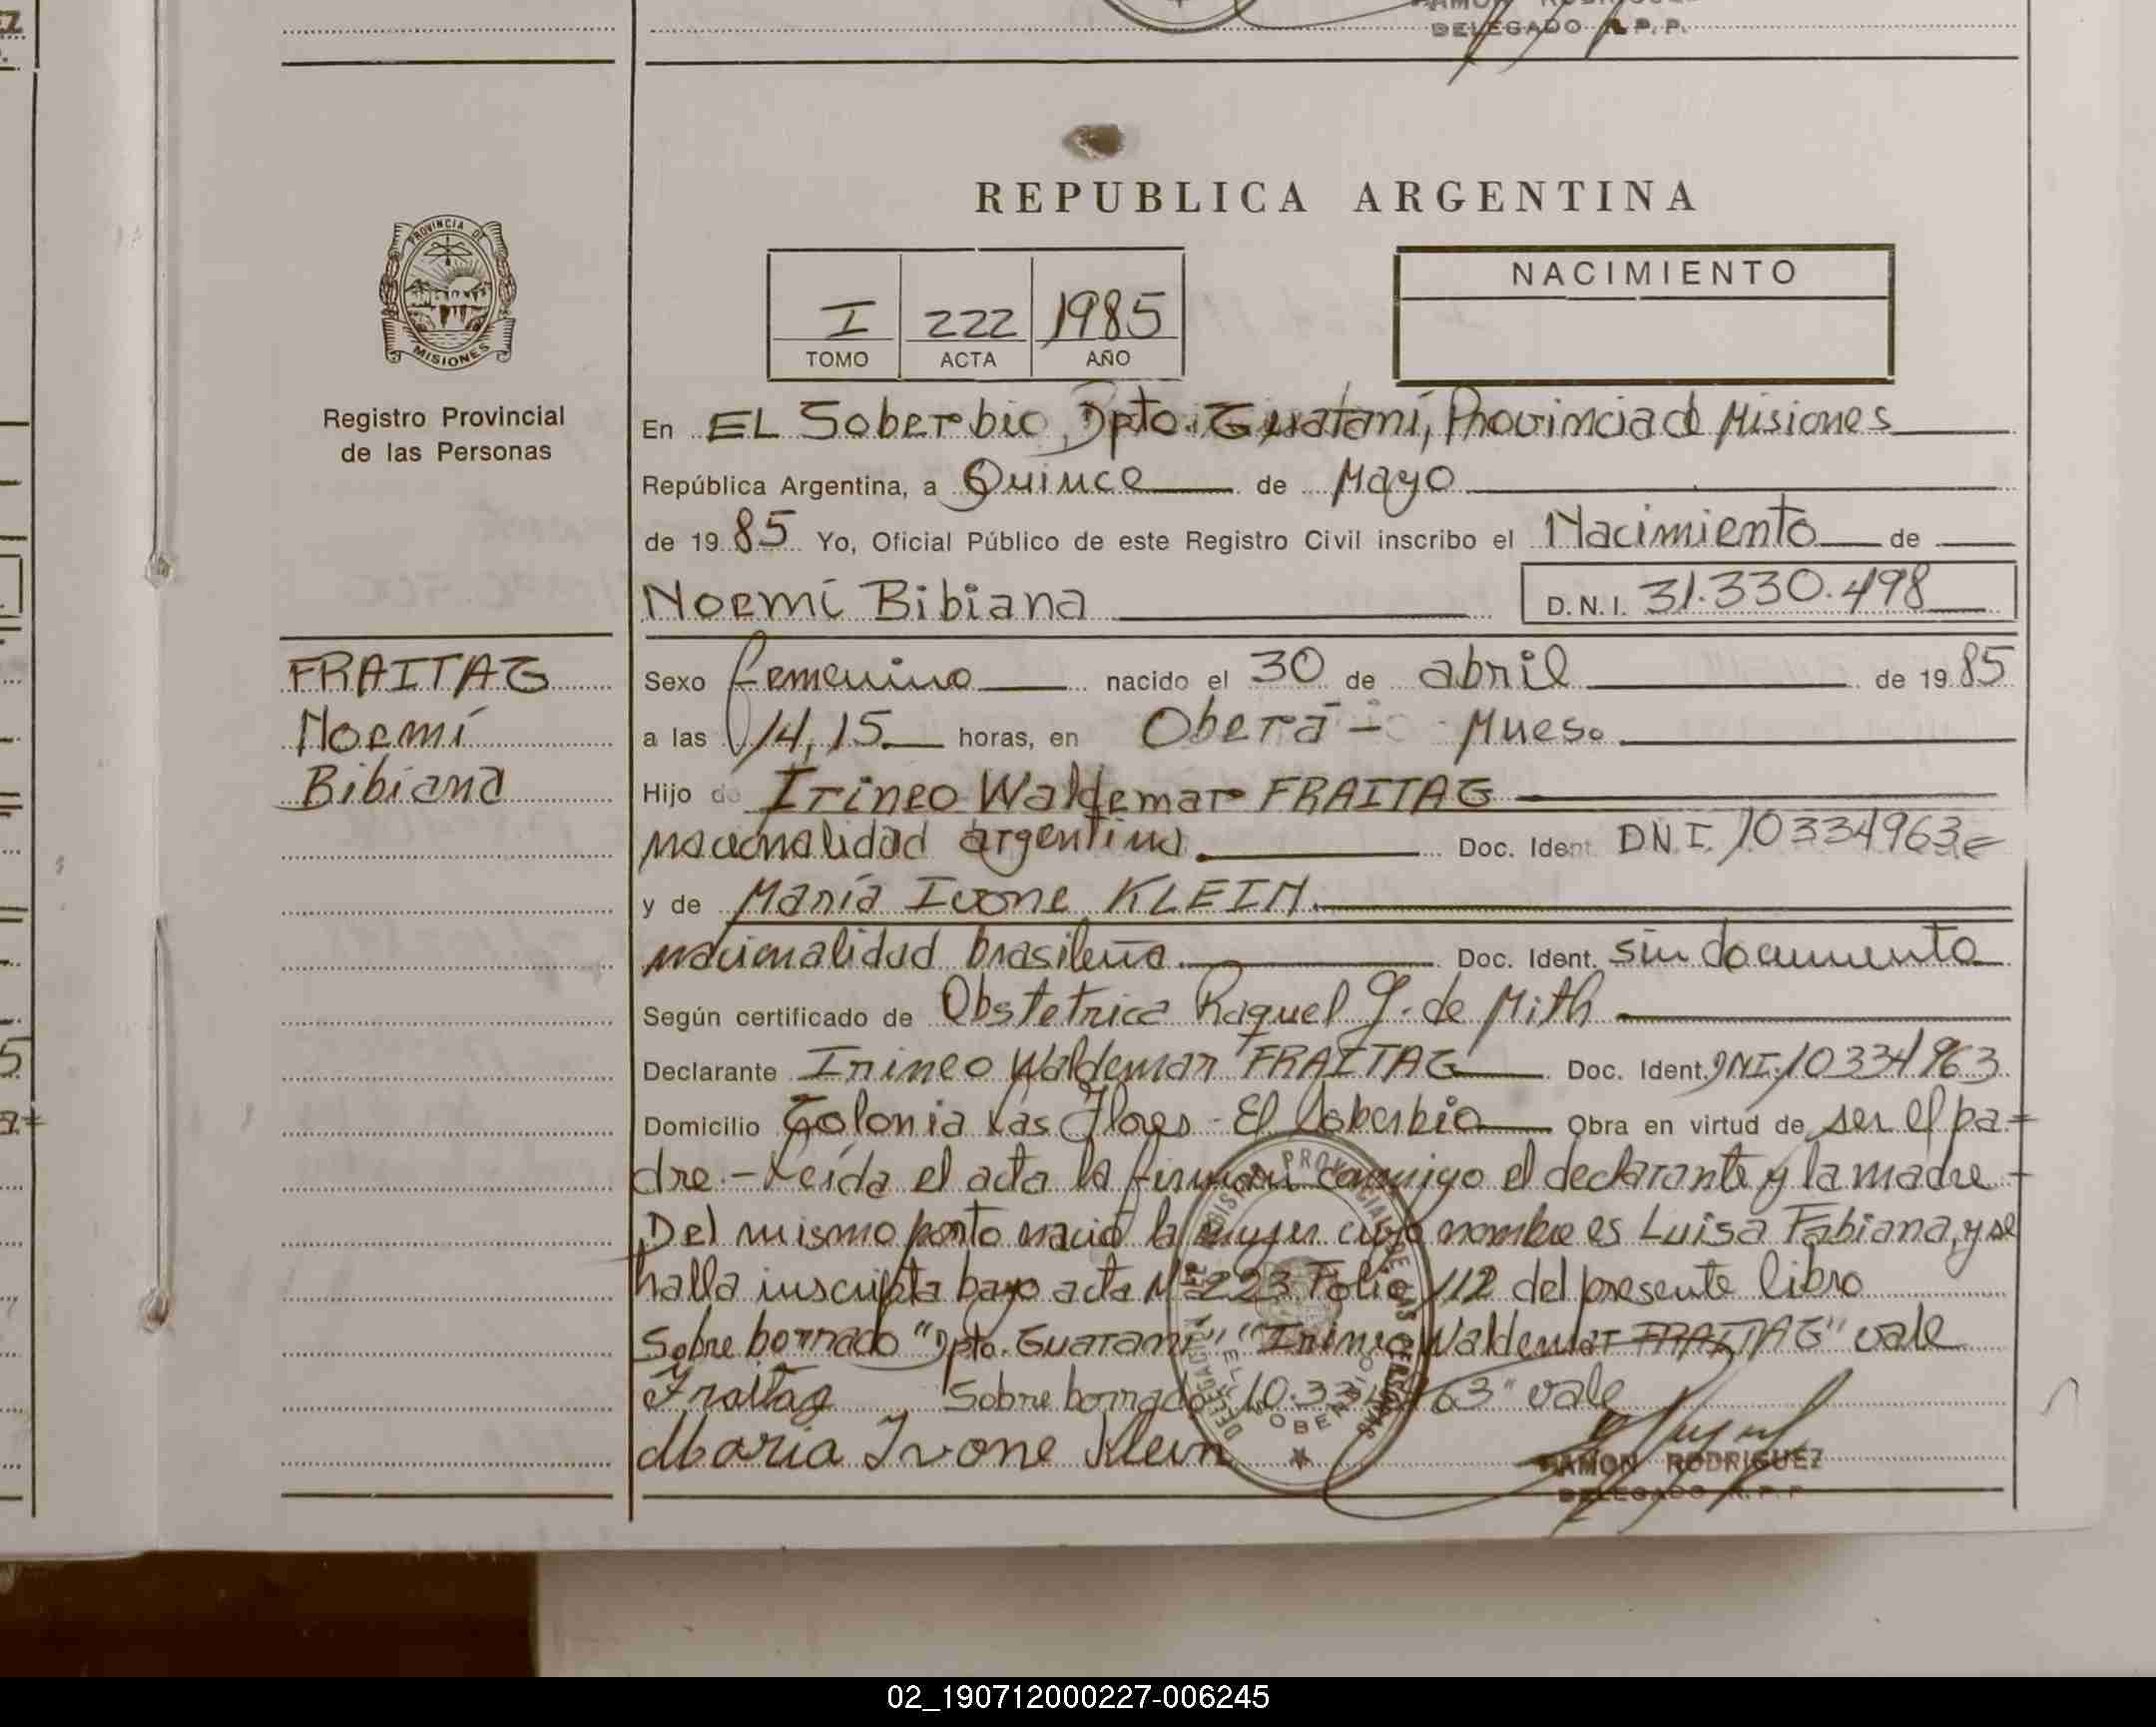 DELEGADO R.P.P.
REPUBLICA ARGENTINA
PROVINCIA DE
MISIONES
Registro Provincial
de las Personas
I 222 1985
TOMO ACTA AÑO
NACIMIENTO
En EL Soberbio, Dpto. Guataní, Provincia de Misiones
República Argentina, a Quince de Mayo
de 1985 Yo, Oficial Público de este Registro Civil inscribo el Nacimiento de
Noemí Bibiana D.N.I. 31.330.498
FRAITAG
Noemí
Bibiana
Sexo femenino nacido el 30 de abril de 1985
a las 14,15 horas, en Oberá - Mnes.
Hijo de Irineo Waldemar FRAITAG
nacionalidad argentina. Doc. Ident. DN.I. 10334963
y de María Ivone KLEIN.
nacionalidad brasileña. Doc. Ident. sin documento
Según certificado de Obstetrica Raquel G. de Mith
Declarante Irineo Waldemar FRAITAG Doc. Ident. DNI. 10334963
Domicilio Colonia Las Flores - El Soberbio Obra en virtud de ser el pa=
dre.- Leída el acta la firman conmigo el declarante y la madre -
Del mismo parto nació la mujer cuyo nombre es Luisa Fabiana, y se
halla inscripta bajo acta Nº 223 Folio 112 del presente libro
Sobre borrado "Dpto. Guaraní", "Irineo Waldemar FRAITAG" vale
Fraitag Sobre borrado "10.334963" vale
Maria Ivone Klein
REGISTRO PROVINCIAL DE LAS PERSONAS
DELEGACION
EL SOBERBIO
RAMON RODRIGUEZ
DELEGADO R.P.P.
02_190712000227-006245